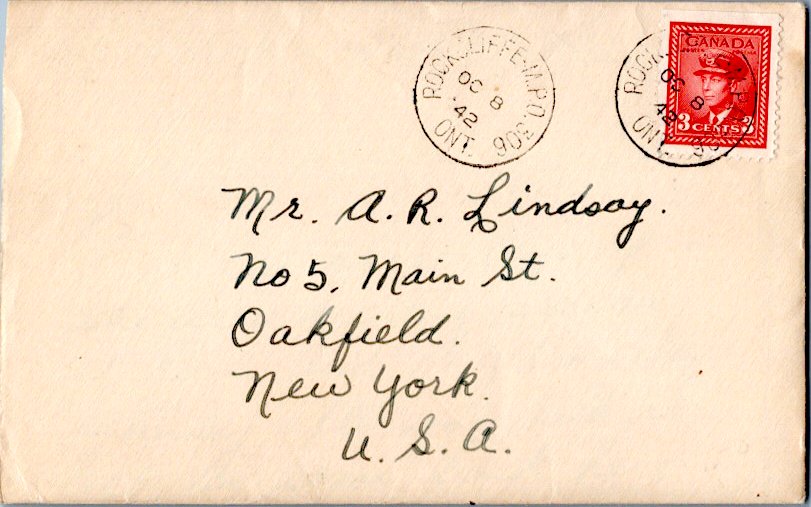 ROCKCLIFFE-M.P.O. 306
OC 8
42
ONT.
CANADA
POSTES POSTAGE
3 CENTS 3
ROCK
M.P.O. 306
OC 8
42
ONT.
Mr. A. R. Lindsay.
No 5, Main St.
Oakfield.
New York.
U. S. A.